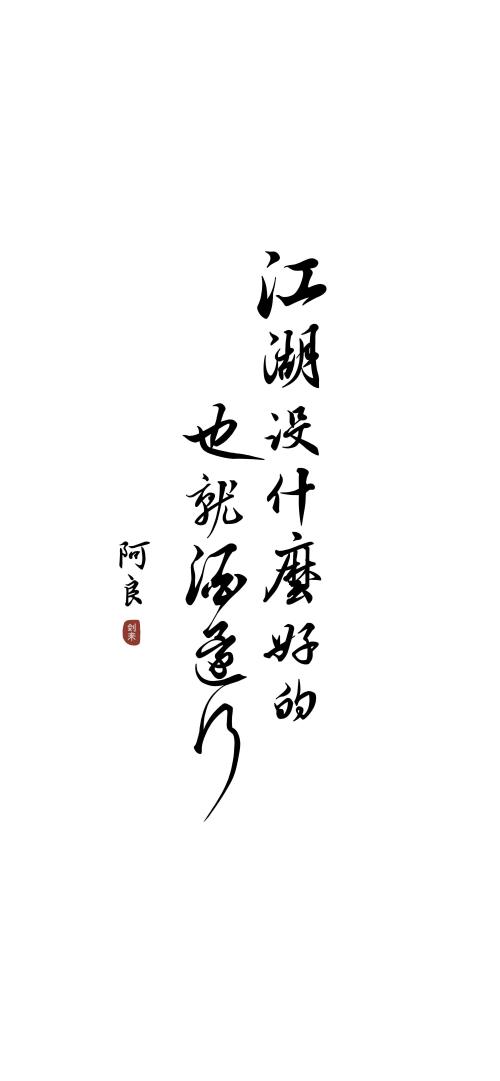 江湖没什麽好的
也就酒還行
阿良
剑来